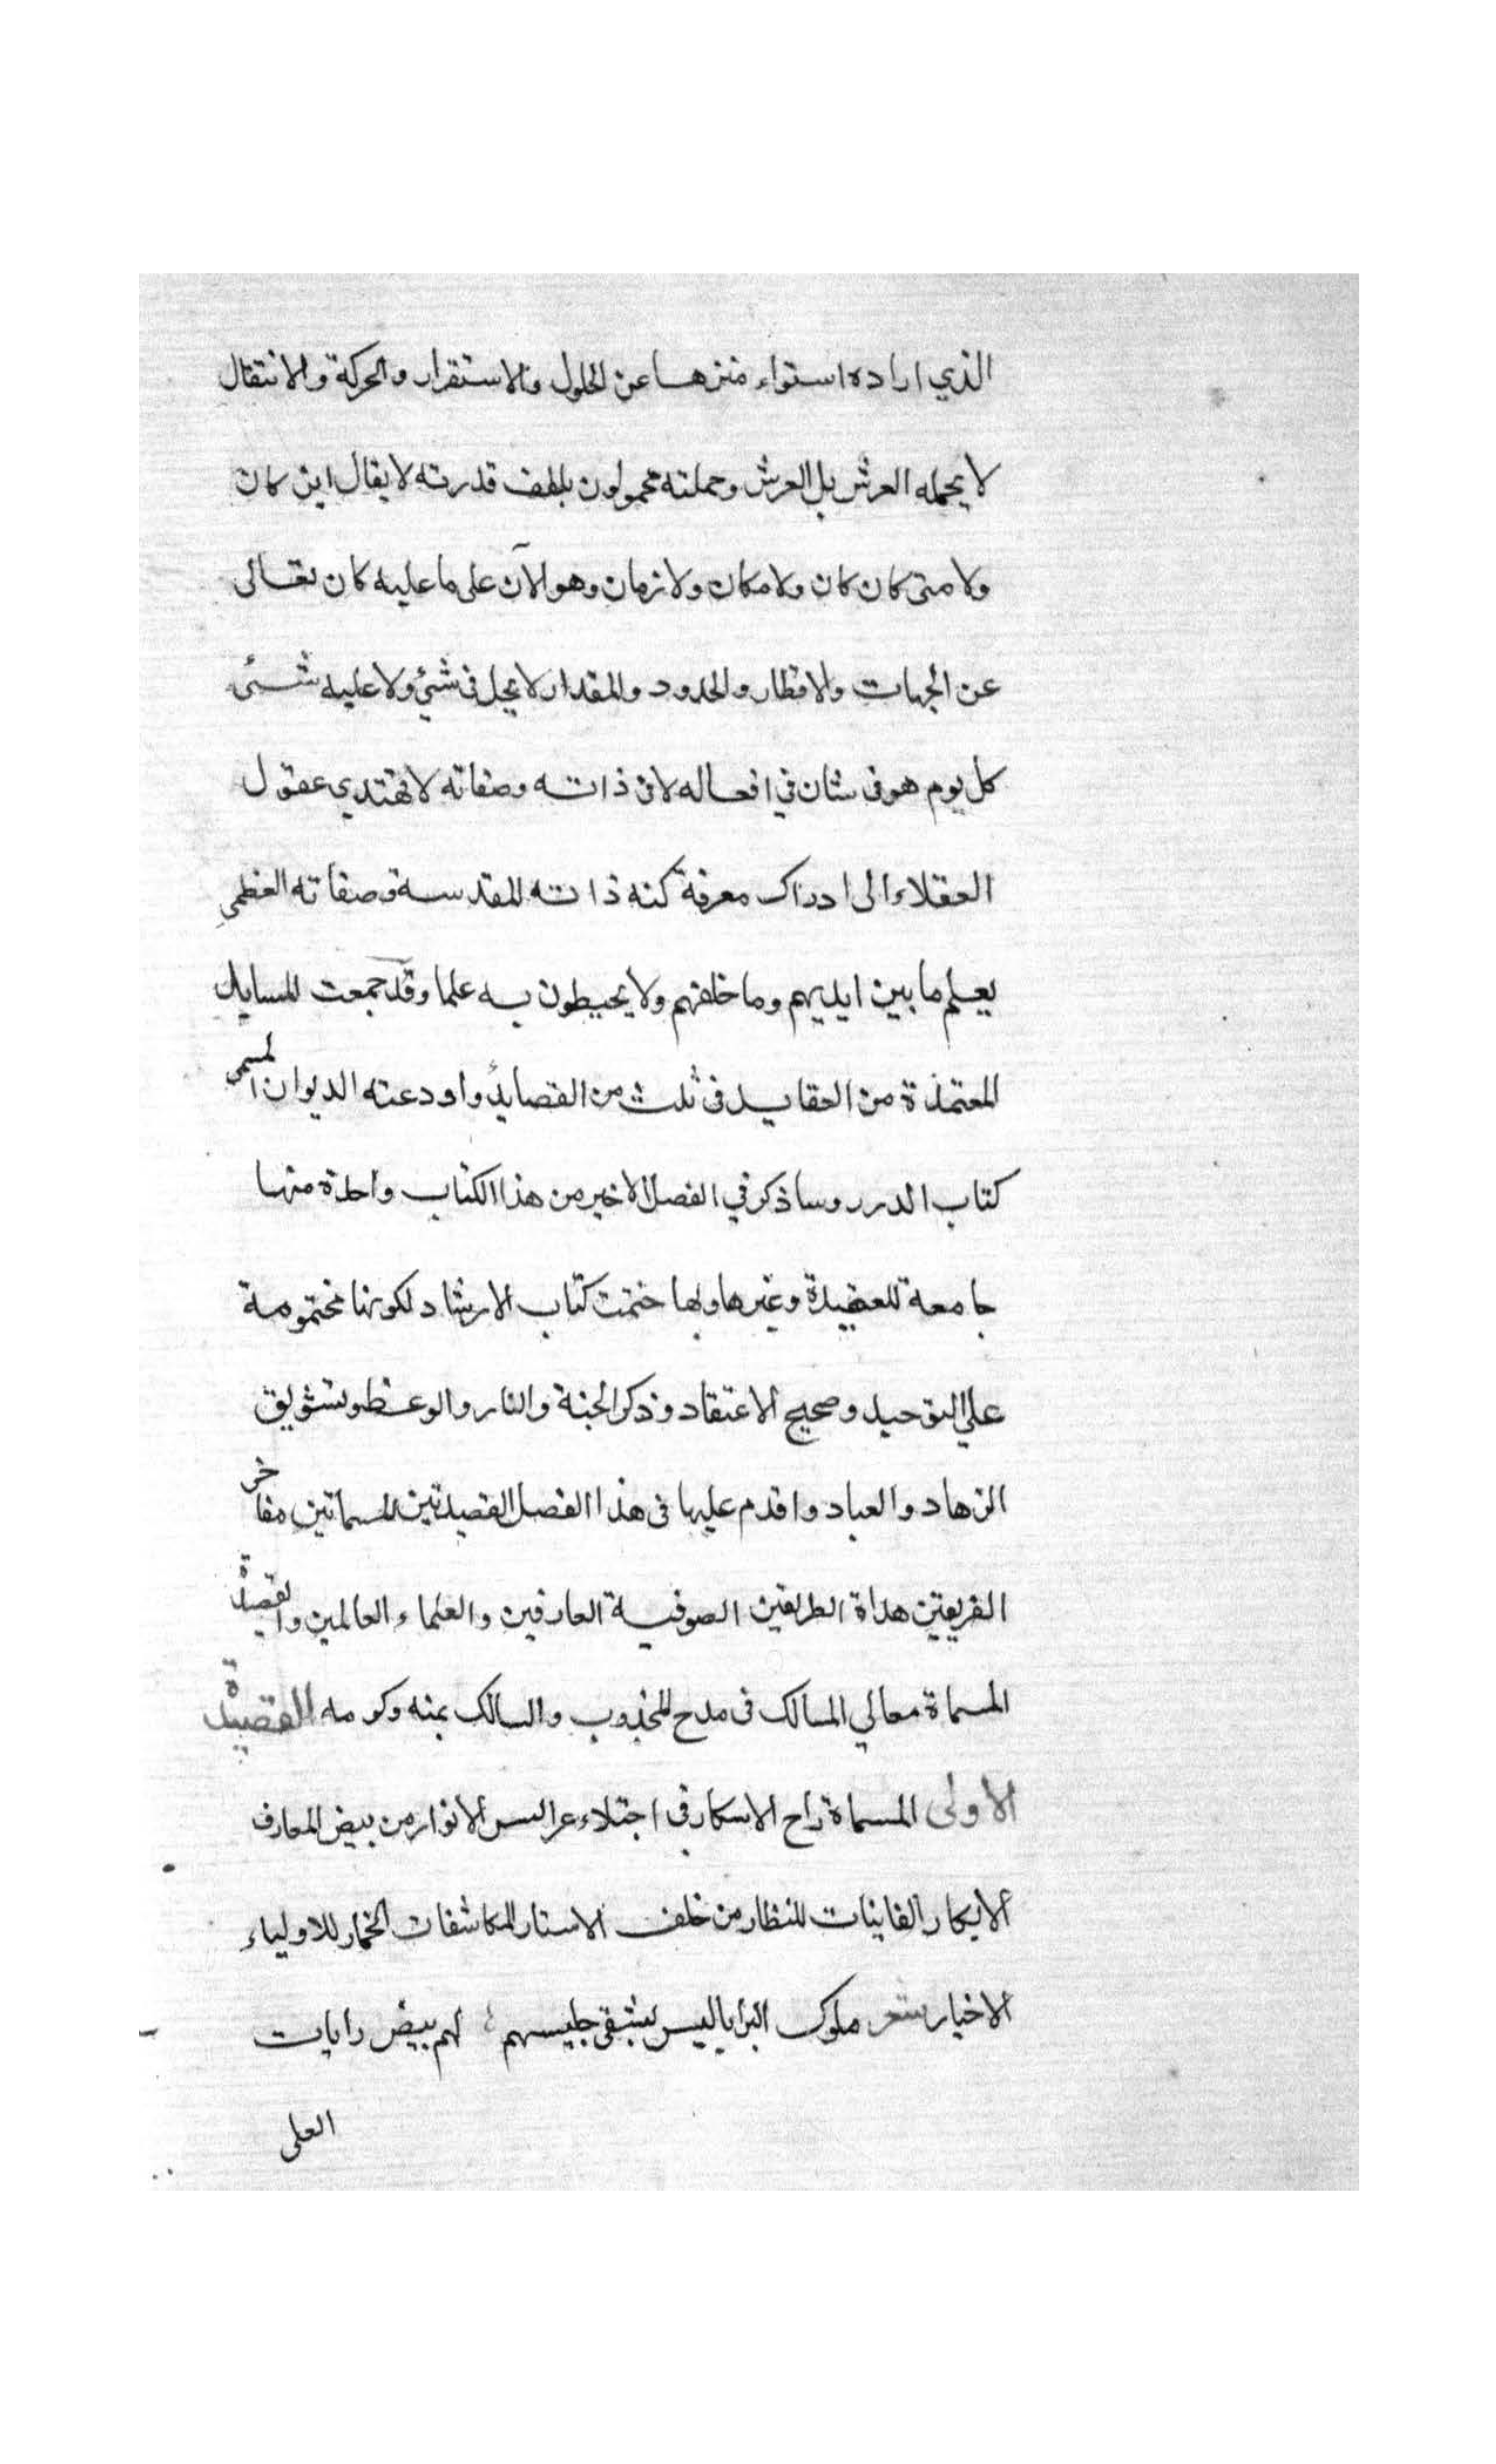 الذي اراده استواء منزها عن الحلول والاستقرار والحركة والانتقال
لا يحمله العرش بل العرش وحملته محمولون بلطف قدرته لا يقال اين كان
ولا متى كان كان ولا مكان ولا زمان وهو الآن على ما عليه كان تعالى
عن الجهات والاقطار والحدود والمقدار لا يحل في شيئ ولا عليه شئ
كل يوم هو في شان في افعاله لا في ذاته وصفاته لا تهتدي عقول
العقلاء الى ادراك معرفة كنه ذاته المقدسة وصفاته العظمى
يعلم ما بين ايديهم وما خلفهم ولا يحيطون به علما وقد جمعت المسايل
المعتمدة من العقايد في ثلث من القصايد واودعته الديوان المسمى
كتاب الدرر وساذكر في الفصل الاخير من هذا الكتاب واحدة منها
جامعة للعقيدة وغيرها وبها ختمت كتاب الارشاد لكونها مختومة
علي التوحيد وصحيح الاعتقاد وذكر الجنة والنار والوعظ وتشويق
الزهاد والعباد واقدم عليها في هذا الفصل القصيدتين المسماتين مفاخر
الفريقين هداة الطريقين الصوفية العارفين والعلماء العالمين والقصيدة
المسماة معالي المسالك في مدح المجذوب والسالك بمنه وكرمه القصيدة
الاولى المسماة راح الاسكار في اجتلاء عرايس الانوار من بيض المعارف
الابكار الفاينات للنظار من خلف الاستار المكاشفات الخمار للاولياء
الاخيار شعر ملوك البرايا ليس يشقى جليسهم لهم بيض رايات
العلى